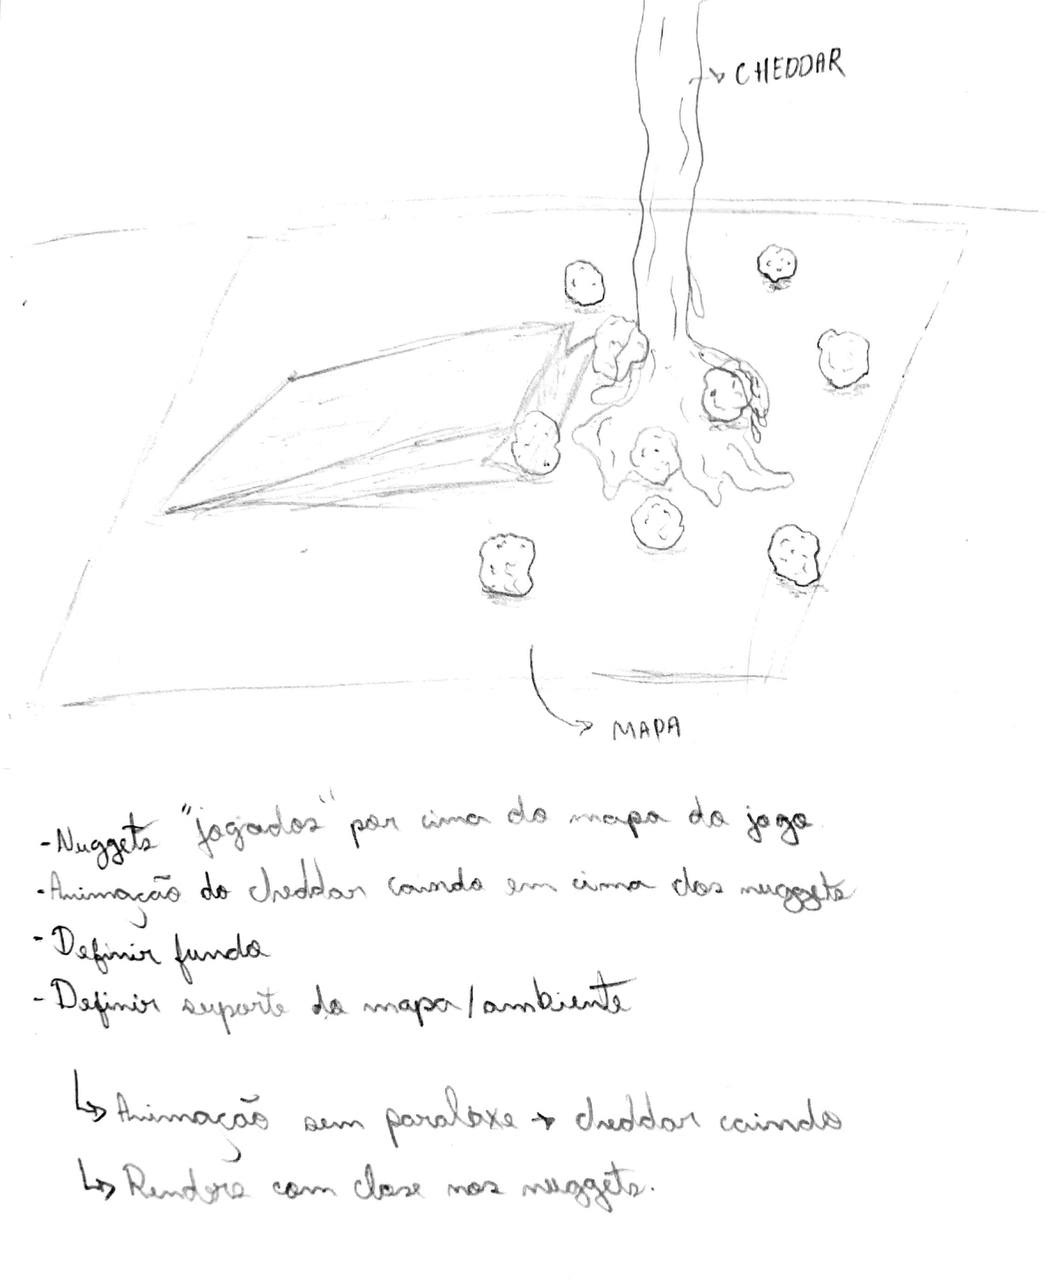 CHEDDAR
MAPA
-Nuggets "jogados" por cima do mapa do jogo.
-Animação do cheddar caindo em cima dos nuggets
-Definir fundo
-Definir suporte do mapa/ambiente
↳Animação sem paralaxe → cheddar caindo
↳Renders com close nos nuggets.